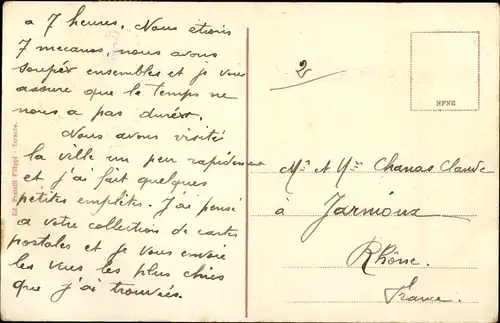 a 7 heures. Nous étions
7 mecanos, nous avons
soupér ensembles et je vous
assure que le temps ne
nous a pas durér.
Nous avons visité
la ville un peu rapidement
et j'ai fait quelques
petites emplètes. J'ai pensé
a votre collection de cartes
postales et je vous envoie
les vues les plus chics
que j'ai trouvées.
Ed. Fratelli Filippi - Taranto.
2
NPNE
Mr et Mme Chanas Claude
à Jarnioux
Rhône.
France.